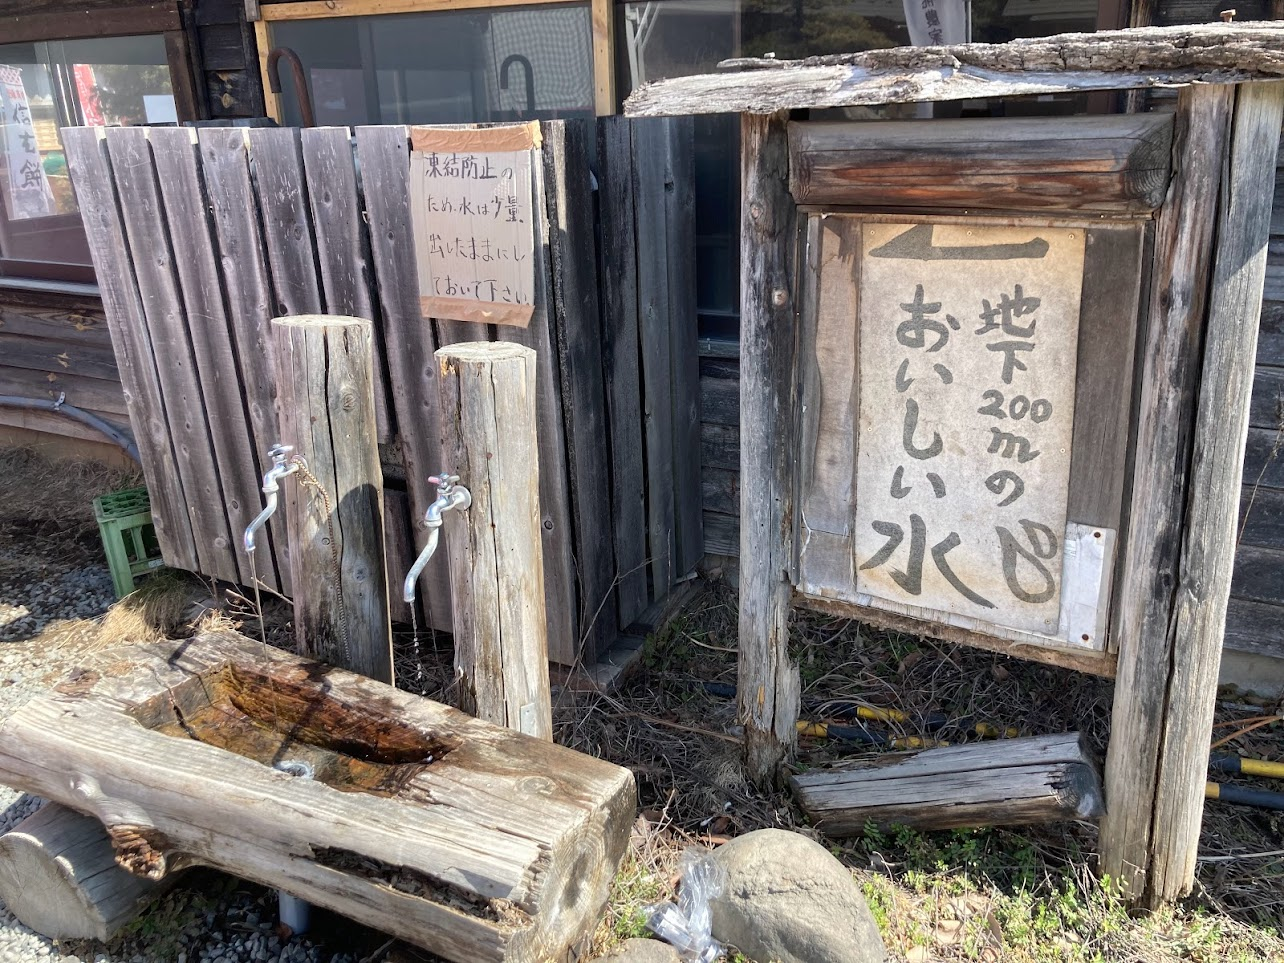 凍結防止の
ため、水は少量
出したままにし
ておいて下さい
地下200mの
おいしい水